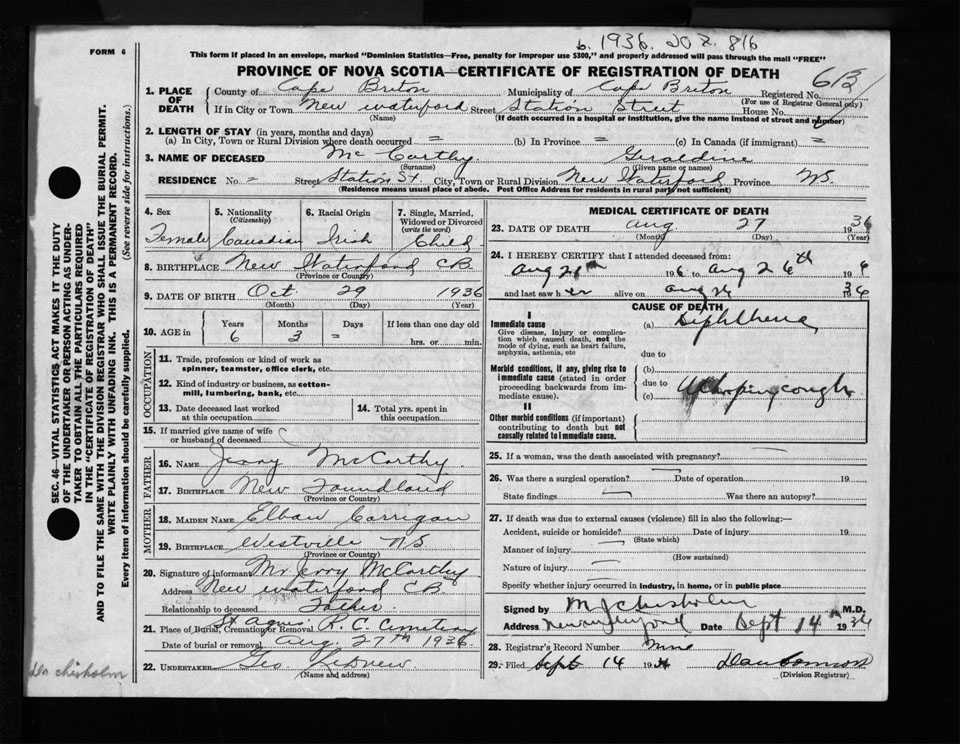 b. 1936. 20 Z. 816
FORM 6
This form if placed in an envelope, marked "Dominion Statistics—Free, penalty for improper use $300," and properly addressed will pass through the mail "FREE"
PROVINCE OF NOVA SCOTIA—CERTIFICATE OF REGISTRATION OF DEATH
613
1. PLACE OF DEATH
County of Cape Briton Municipality of Cape Briton Registered No.
(For use of Registrar General only)
If in City or Town New Waterford Street Station Street House No.
(Name) (If death occurred in a hospital or institution, give the name instead of street and number)
2. LENGTH OF STAY (in years, months and days)
(a) In City, Town or Rural Division where death occurred = (b) In Province = (c) In Canada (if immigrant) =
3. NAME OF DECEASED Mc Carthy. Geraldine
(Surname) (Given name or names)
RESIDENCE No. = Street Station St. City, Town or Rural Division New Waterford Province NS
(Residence means usual place of abode. Post Office Address for residents in rural parts not sufficient)
4. Sex Female
5. Nationality (Citizenship) Canadian
6. Racial Origin Irish
7. Single, Married, Widowed or Divorced (write the word) Child
8. BIRTHPLACE New Waterford CB
(Province or Country)
9. DATE OF BIRTH Oct. 29 1936
(Month) (Day) (Year)
10. AGE in Years 6 Months 3 Days = If less than one day old hrs. or min.
OCCUPATION
11. Trade, profession or kind of work as spinner, teamster, office clerk, etc.
12. Kind of industry or business, as cotton-mill, lumbering, bank, etc.
13. Date deceased last worked at this occupation
14. Total yrs. spent in this occupation
15. If married give name of wife or husband of deceased
FATHER
16. NAME Jerry McCarthy.
17. BIRTHPLACE New Foundland
(Province or Country)
MOTHER
18. MAIDEN NAME Carrigan
19. BIRTHPLACE Westville NS
(Province or Country)
20. Signature of informant Mr Jerry McCarthy
Address New Waterford CB
Relationship to deceased Father.
21. Place of Burial, Cremation or Removal St Agnes R. C. Cemetery
Date of burial or removal Aug 27th 1936
22. UNDERTAKER Geo
(Name and address)
MEDICAL CERTIFICATE OF DEATH
23. DATE OF DEATH Aug 27 1936
(Month) (Day) (Year)
24. I HEREBY CERTIFY that I attended deceased from:
Aug 21th 196 to Aug 26th 196
and last saw her alive on Aug 26 1936
CAUSE OF DEATH
I
Immediate cause
Give disease, injury or complication which caused death, not the mode of dying, such as heart failure, asphyxia, asthenia, etc
(a) Diphtheria
due to
Morbid conditions, if any, giving rise to immediate cause (stated in order proceeding backwards from immediate cause).
(b)
due to Whooping cough
(c)
II
Other morbid conditions (if important) contributing to death but not causally related to immediate cause.
25. If a woman, was the death associated with pregnancy?
26. Was there a surgical operation? Date of operation 19
State findings Was there an autopsy?
27. If death was due to external causes (violence) fill in also the following:—
Accident, suicide or homicide? Date of injury 19
(State which)
Manner of injury
(How sustained)
Nature of injury
Specify whether injury occurred in industry, in home, or in public place
Signed by M J Chisholm M.D.
Address Date Sept 14th 1936
28. Registrar's Record Number
29. Filed Sept 14 19
(Division Registrar)
SEC. 46—VITAL STATISTICS ACT MAKES IT THE DUTY
OF THE UNDERTAKER OR PERSON ACTING AS UNDER-
TAKER TO OBTAIN ALL THE PARTICULARS REQUIRED
IN THE "CERTIFICATE OF REGISTRATION OF DEATH"
AND TO FILE THE SAME WITH THE DIVISION REGISTRAR WHO SHALL ISSUE THE BURIAL PERMIT.
WRITE PLAINLY WITH UNFADING INK. THIS IS A PERMANENT RECORD.
Every item of information should be carefully supplied. (See reverse side for instructions.)
Dr Chisholm